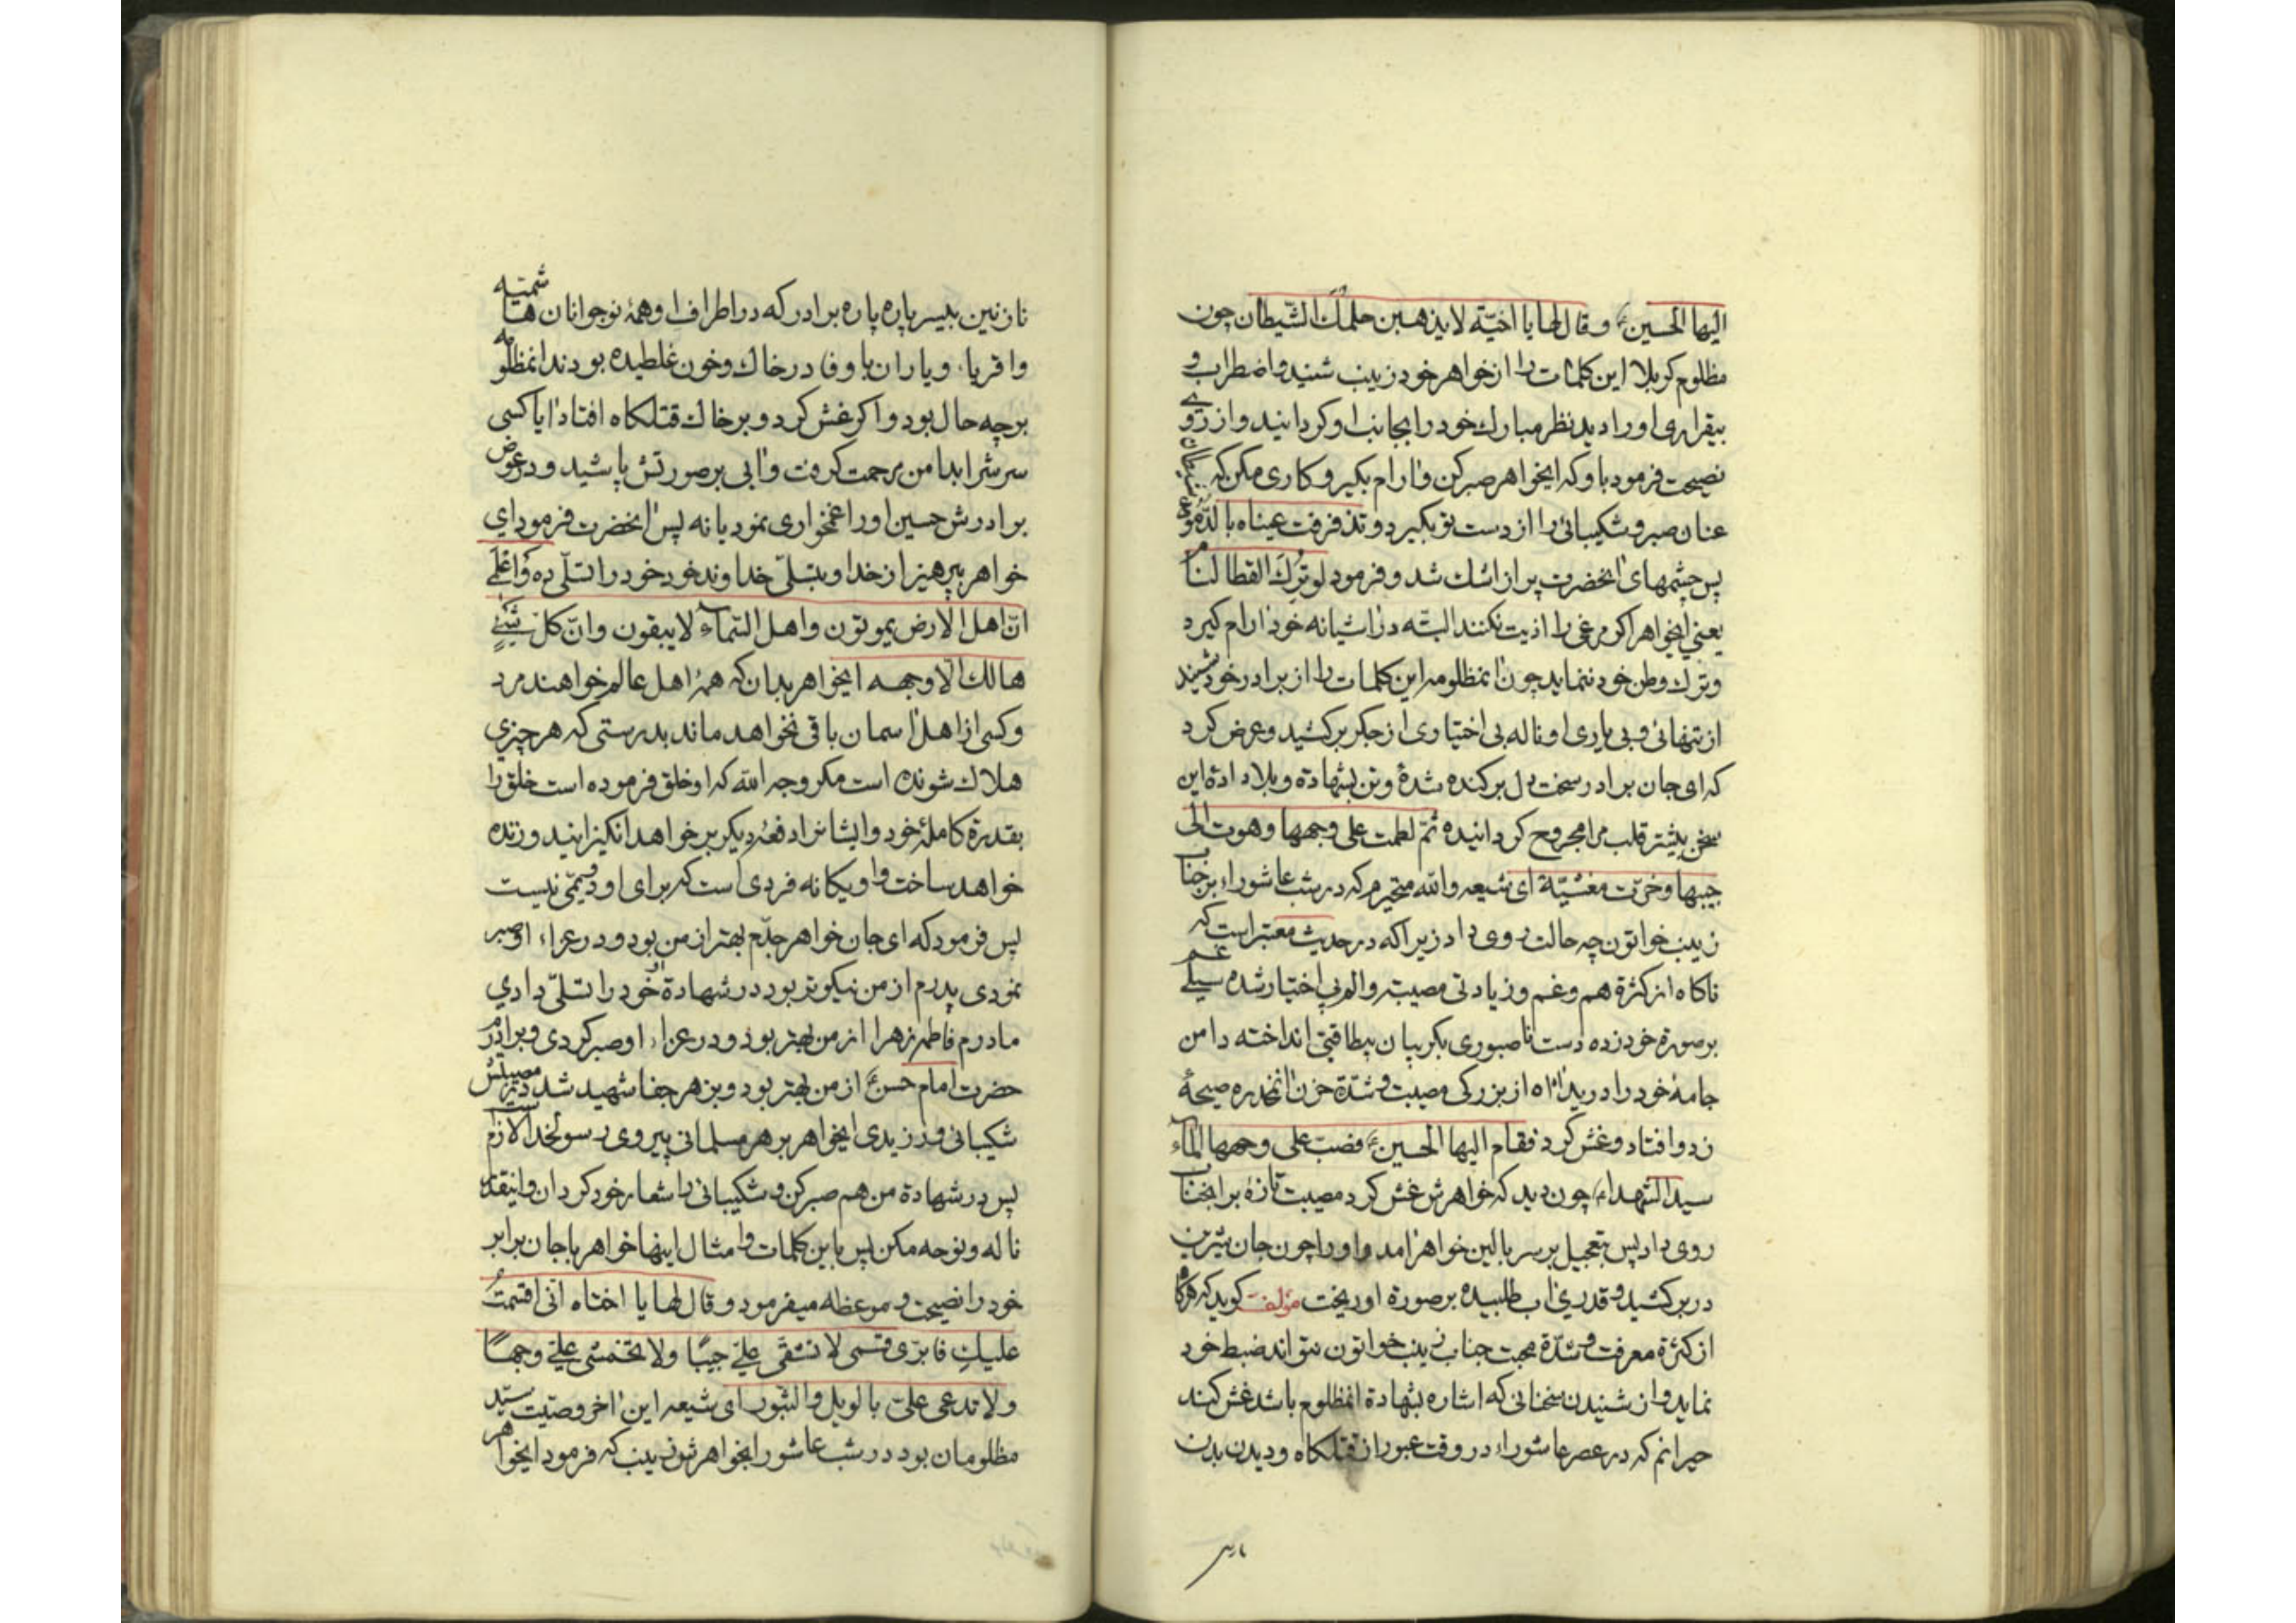 الیها الحسین؏ و قال لها یا اخیّة لا یذهبن حلمک الشیطان چون
مظلوم کربلا این کلمات را از خواهر خود زینب شنید و اضطراب و
بیقراری او را دید نظر مبارک خود را بجانب او کردانید و از روے
نصیحت فرمود باو که ایخواهر صبر کن و ارام بکیر و کاری مکن که
عنان صبر و شکیبائی را از دست تو بکیرد و تذفرفت عیناه بالدّموع
پس چشمهای انحضرت پر از اشک شد و فرمود لو تُرِکَ القطا لنام
یعنی ایخواهر اکر مرغی را اذیت نکنند البتّه در اشیانه خود ارام کیرد
و ترک وطن خود ننماید چون انمظلومه این کلمات را از برادر خود شنید
از تنهائی و بی یاری او ناله بی اختیاری از جکر برکشید و عرض کرد
که ای جان برادر سخت دل برکنده شدۀ و تن بشهادة و بلا دادۀ این
سخن بیشتر قلب مرا مجروح کردانیده ثمّ لطمت علی وجهها و هوت الی
جیبها و خرّت مغشیّة ای شیعه والله متحیرم که در شب عاشوراء بر جناب
زینب خواتون چه حالت روی داد زیرا که در حدیث معتبر است که
ناکاه از کثرة هم و غم و زیادتی مصیبت و الم بی اختیار شده سیلے غم
بر صورة خود زده دست ناصبوری بکریبان بیطاقتی انداخته دامن
جامۀ خود را درید اه اه از بزرکی مصیبت و شدّة حزن انمخدره صیحۀ
زد و افتاد و غش کرد فقام الیها الحسین؏ فصب علی وجهها المآء
سید الشهداء؏ چون دید که خواهرش غش کرد مصیبت تازۀ بر انجناب
روی داد پس بتعجیل بر سر بالین خواهر امد و او را چون جان شیرین
در بر کشید و قدری اب طلبیده بر صورة او ریخت مؤلف کوید که هرکاه
از کثرة معرفت و شدّة محبت جناب زینب خواتون نتواند ضبط خود
نماید و از شنیدن سخنانی که اشاره بشهادة انمظلوم باشد غش کند
حیرانم که در عصر عاشوراء در وقت عبور از قتلکاه و دیدن بدن
نازنین بیسر پاره پاره برادر که در اطراف او همۀ نوجوانان هاشمیّه
و اقرباء و یاران باوفا در خاک و خون غلطیده بودند انمظلومه
بر چه حال بود و اکر غش کرد و بر خاک قتلکاه افتاد ایا کسی
سرش را بدامن مرحمت کرفت و ابی بر صورتش پاشید و در عوض
برادرش حسین او را غمخواری نمود یا نه پس انحضرت فرمود ای
خواهر بپرهیز از خدا و بتسلّی خداوند خود خود را تسلّی ده وَاعْلَمِے
انّ اهل الارض یموتون و اهل السّماء لا یبقون و انّ کلّ شَیْءٍ
هالک الّا وجهه ایخواهر بدان که همۀ اهل عالم خواهند مرد
و کسی از اهل اسمان باقی نخواهد ماند بدرستی که هر چیزی
هلاک شونده است مکر وجه الله که او خلق فرموده است خلق را
بقدرة کاملۀ خود و ایشان را دفعۀ دیکر بر خواهد انکیزانید و زنده
خواهد ساخت و او یکانه فردی است که برای او دویّمی نیست
پس فرمود که ای جان خواهر جدّم بهتر از من بود و در عزاء او صبر
نمودی پدرم از من نیکوتر بود در شهادة او خود را تسلّی دادي
مادرم فاطمۀ زهرا از من بهتر بود و در عزاء او صبر کردی و برادرم
حضرت امام حسن؏ از من بهتر بود و بزهر جفا شهید شد در مصیبتش
شکیبائی ورزیدی ایخواهر بر هر مسلمانی پیروی رسولخدا لازم است
پس در شهادة من هم صبر کن و شکیبائی را شعار خود کردان و اینقدر
ناله و نوحه مکن پس باین کلمات و امثال اینها خواهر با جان برابر
خود را نصیحت و موعظه میفرمود و قال لها یا اختاه انّی اقسمتُ
علیکِ فابرّی قسمی لا تشقّی علیّ جیبًا و لا تخمشی علیّ وجهًا
و لا تدعی علیّ بالویل و الثّبور ای شیعه این اخر وصیّت سیّد
مظلومان بود در شب عاشورا بخواهرش زینب که فرمود ایخواهر